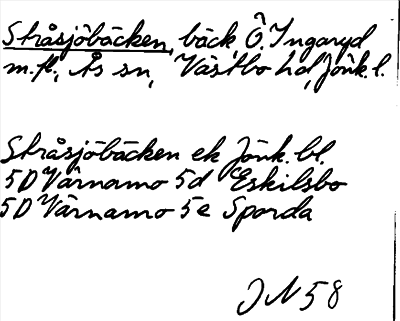 Stråsjöbäcken, bäck, Ö. Ingaryd
m.fl., Ås sn, Västbo hd, Jönk. l.
Stråsjöbäcken ek Jönk. bl.
5D Värnamo 5d Eskilsbo
5D Värnamo 5e Sporda
JN 58